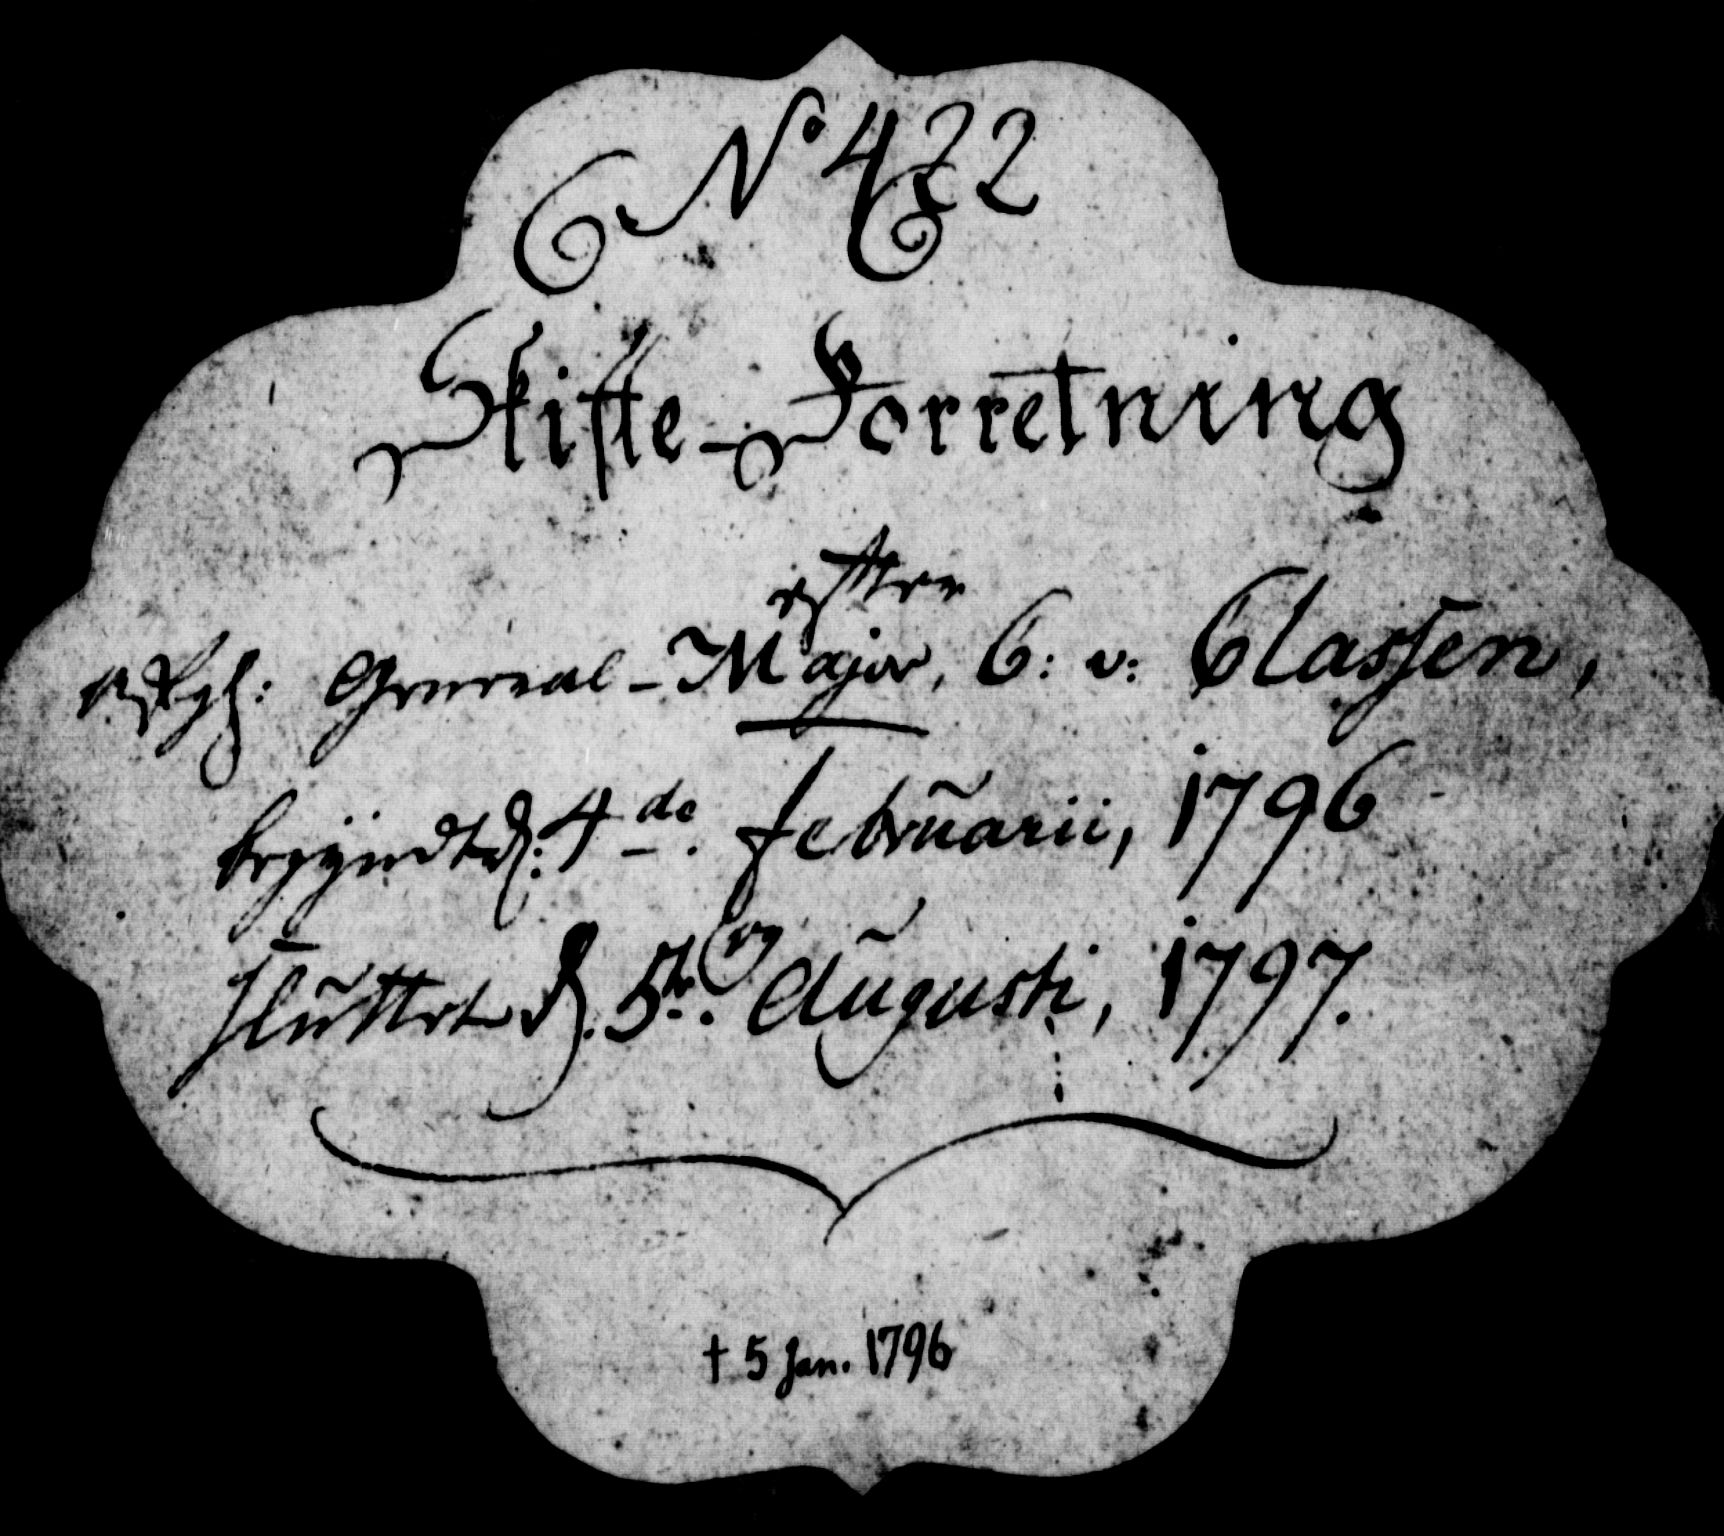 No 422
Skifte-Forretning
efter
General-Major, C: v: Classen,
begyndt d: 4de. Februarii, 1796
og
sluttet d. 5te. Augusti, 1797.
† 5 Jan. 1796